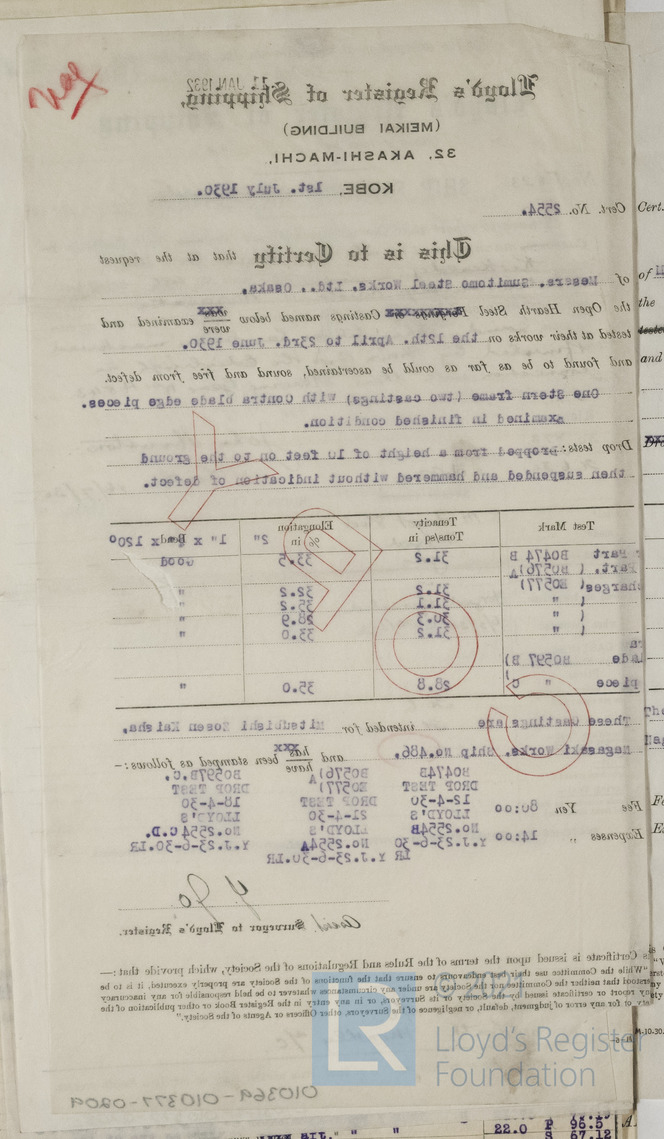 Lloyd's Register of Shipping,
11 JAN. 1932
(MEIKAI BUILDING)
32, AKASHI-MACHI,
KOBE, 1st. July 1930.
Cert. No. 2554.
Cert.
This is to Certify that at the request
of Messrs. Sumitomo Steel Works, Ltd., Osaka,
of
the Open Hearth Steel Forgings or Castings named below was were examined and
the
tested at their works on the 12th. April to 23rd. June 1930.
tested
and found to be as far as could be ascertained, sound and free from defect.
and
One Stern frame (two castings) with Contra blade edge pieces.
Examined in finished condition.
Drop tests: Dropped from a height of 10 feet on to the ground
then suspended and hammered without indication of defect.
COPY
Test Mark Tenacity Tons/sq in Elongation % in 2" 1" x ¾" Bends x 120°
Part B0474 B 31.2 33.5 Good
Part. ( B0576) A
charges( B0577) 31.2 32.2 "
( " 31.1 35.2 "
( " 30.3 28.9 "
( " 31.2 33.0 "
B0597 B)
piece " C) 28.8 35.0 "
These Castings are intended for Mitsubishi Zosen Kaisha,
The
Nagasaki Works. Ship No.486. and has have been stamped as follows:-
Nag
B0474B B0576) A B0597B.C.
DROP TEST B0577) DROP TEST
12-4-30 DROP TEST 18-4-30
LLOYD'S 21-4-30 LLOYD'S
No.2554B LLOYD'S No.2554C.D.
Y.J.23-6-30 No.2554A Y.J.23-6-30.LR.
LR Y.J.23-6-30.LR
Fee Yen 80:00
Expenses " 14:00
Surveyor to Lloyd's Register.
Certificate is issued upon the terms of the Rules and Regulations of the Society, which provide that:—
"While the Committee use their best endeavours to ensure that the functions of the Society are properly executed, it is to be
understood that neither the Committee nor the Society are under any circumstances whatever to be held responsible for any inaccuracy
any report or certificate issued by the Society or its Surveyors, or in any entry in the Register Book or other publication of the
or for any error of judgment, default, or negligence of the Surveyors, other Officers or Agents of the Society."
010369-010377-0209
LR
Lloyd's Register
Foundation
22.0 P 96.5
S 67.12